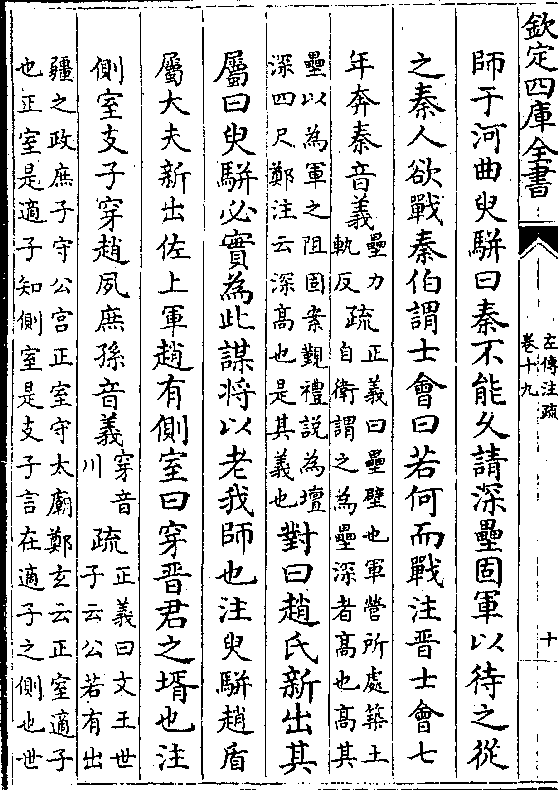 欽定四庫全書
左傳注疏
卷十九
十
師于河曲臾駢曰秦不能久請深壘固軍以待之從
之秦人欲戰秦伯謂士會曰若何而戰注晉士會七
年奔秦音義壘力軌反疏正義曰壘壁也軍營所處築土自衛謂之為壘深者高也高其
壘以為軍之阻固案覲禮說為壇深四尺鄭注云深高也是其義也對曰趙氏新出其
屬曰臾駢必實為此謀將以老我師也注臾駢趙盾
屬大夫新出佐上軍趙有側室曰穿晉君之壻也注
側室支子穿趙夙庶孫音義穿音川疏正義曰文王世子云公若有出
疆之政庶子守公宮正室守太廟鄭玄云正室適子
也正室是適子知側室是支子言在適子之側也世